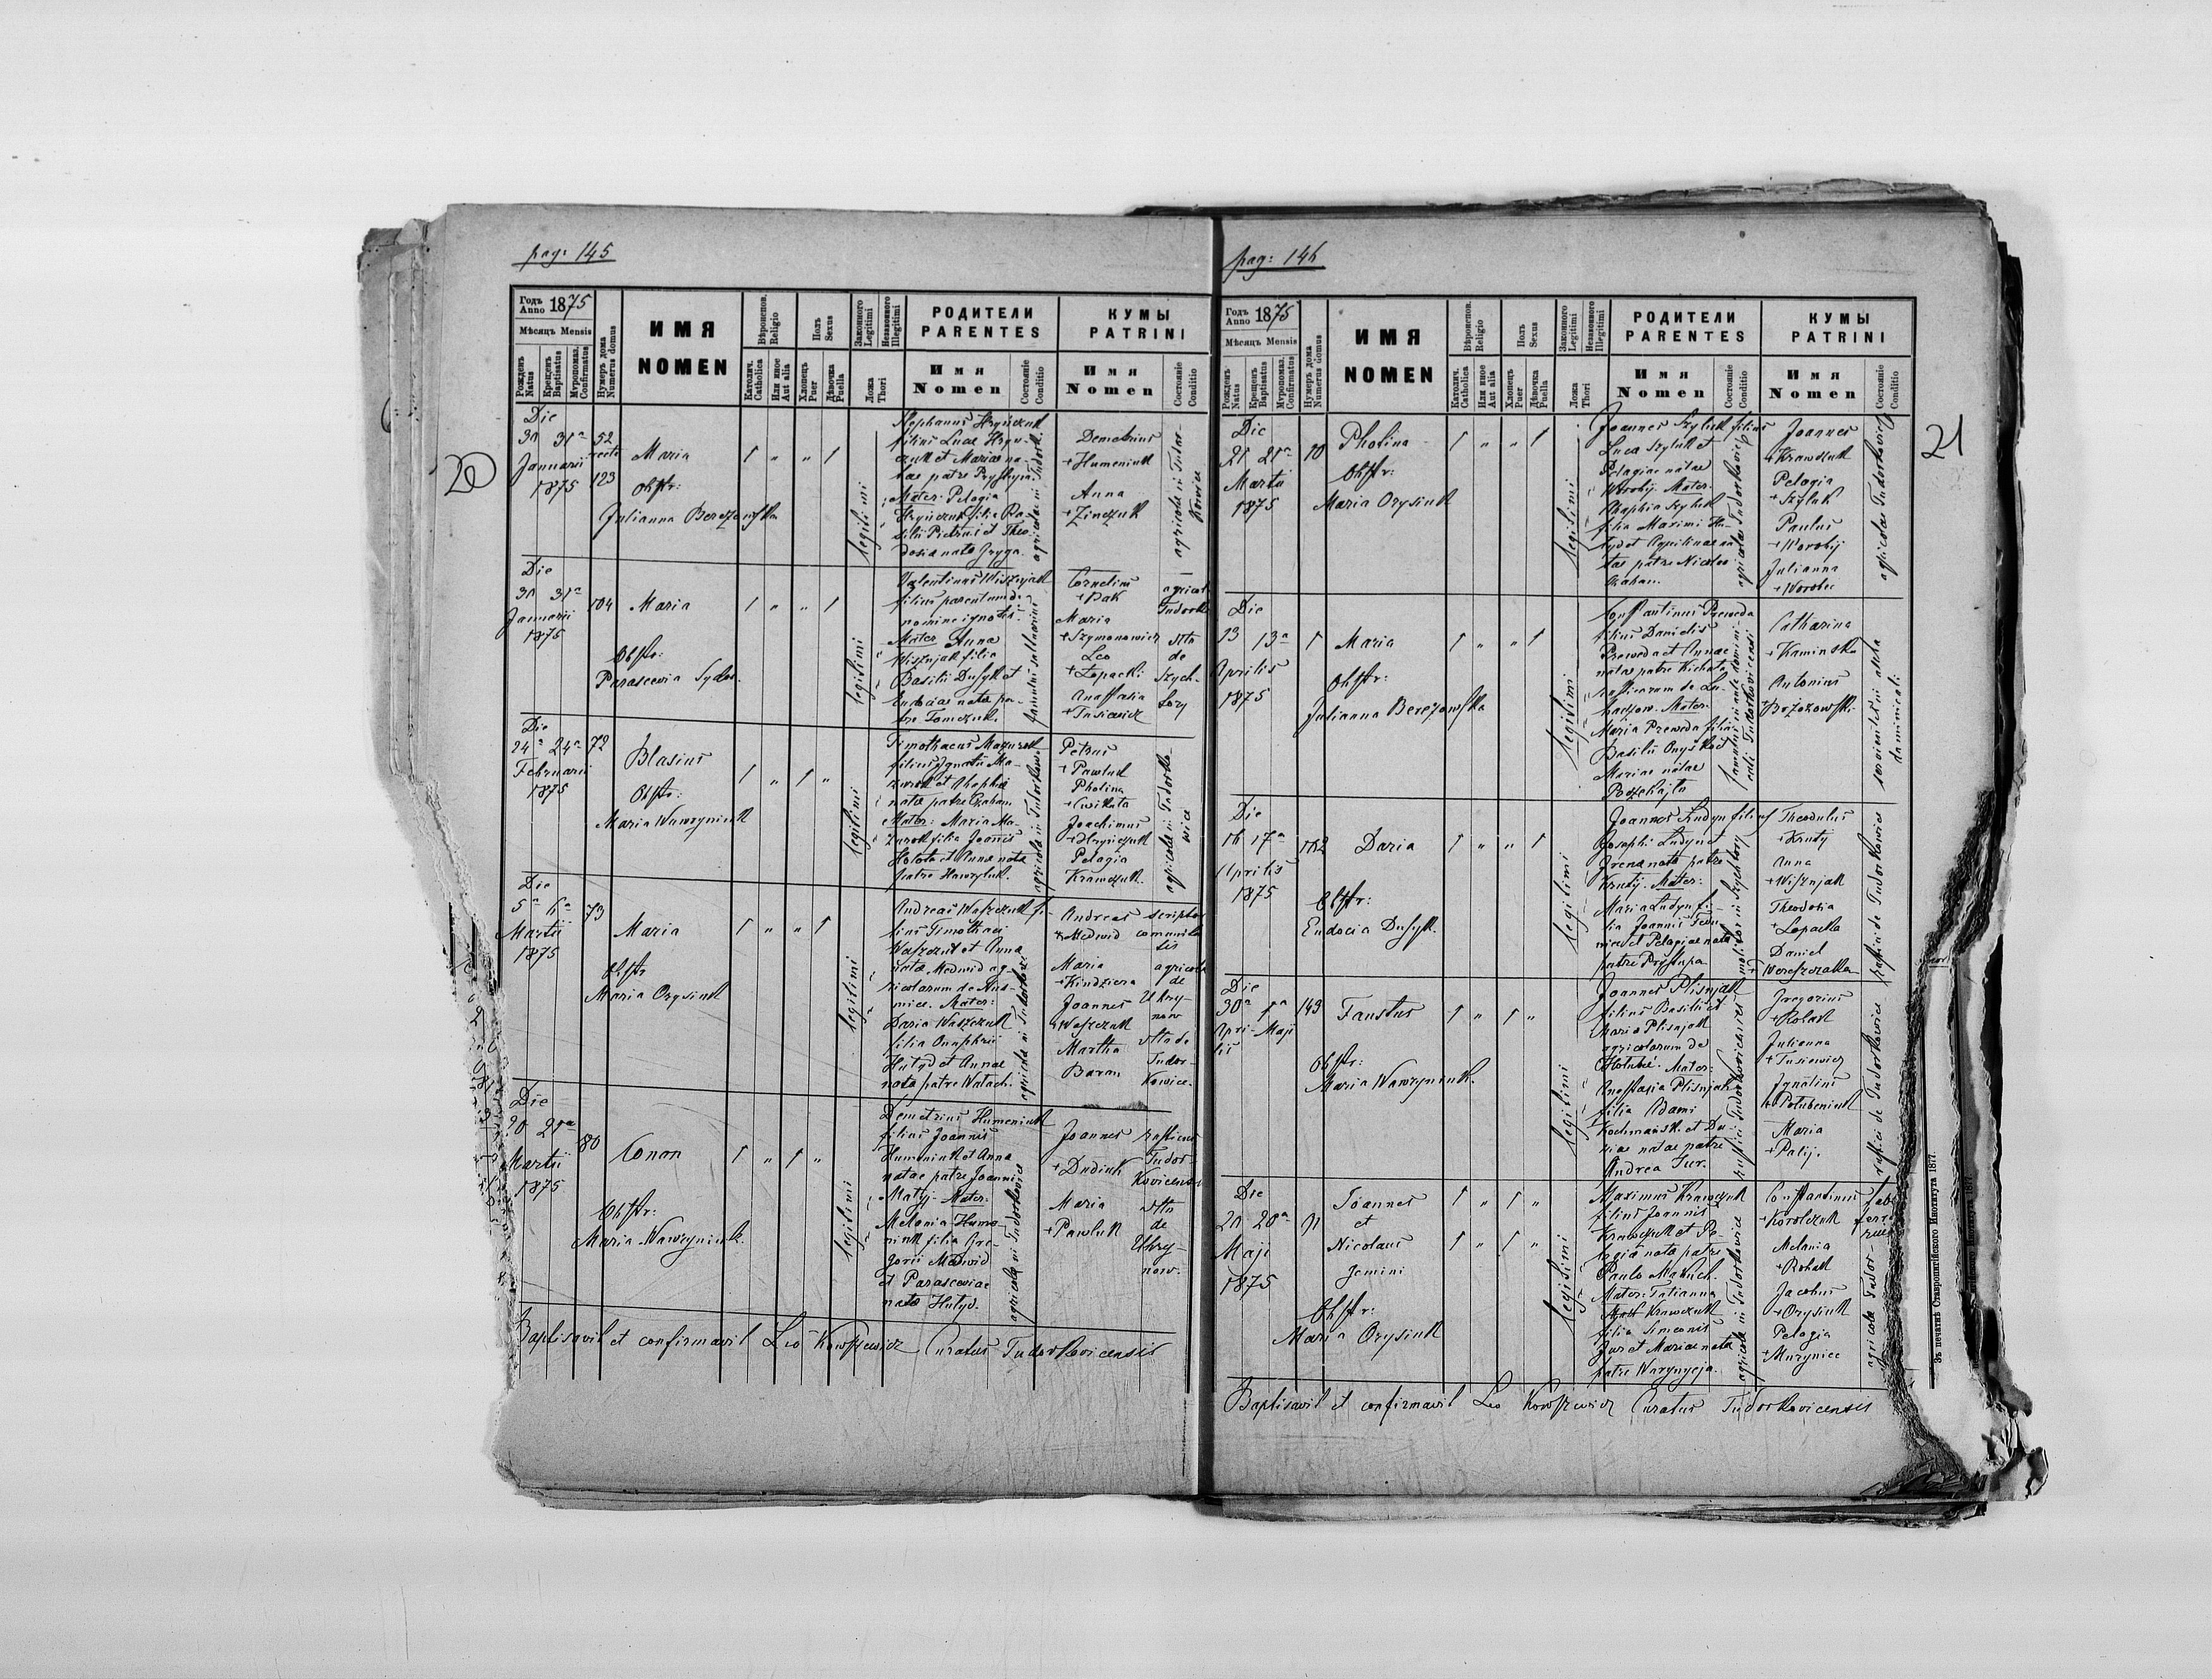 pag: 145
Годъ Anno 1875
Мѣсяцъ Mensis
Рожденъ Natus
Крещенъ Baptisatus
Муропомаз. Confirmatus
Нумеръ дома Numerus domus
ИМЯ
NOMEN
Вѣроиспов. Religio
Католич. Catholica
Или иное Aut alia
Полъ Sexus
Хлопецъ Puer
Дѣвочка Puella
Законного Legitimi
Незаконного Illegitimi
Ложа Thori
РОДИТЕЛИ
PARENTES
Имя
Nomen
Состояніе Conditio
КУМЫ
PATRINI
Имя
Nomen
Состояніе Conditio
20
Die
30 31a
Januarii
1875
52
recte
123
Maria
Obstr:
Julianna Berezowska
1 " " 1
legitimi
Stephanus Hryńczuk
filius Lucae Hryń-
czuk et Mariae na-
tae patre Prystupa.
Mater: Pelagia
Hryńczuk filia Ba-
silii Pietrus et Theo-
dosia nata Gryga.
agricolae in Tudork.
Demetrius
+ Humeniuk
Anna
+ Zinczuk
agricolae in Tudor-
kowice
Die
30 31a
Januarii
1875
104
Maria
Obstr:
Parascevia Sydor.
1 " " 1
legitimi
Valentinus Wisznjak
filius parentum de
nomine ignotis.
Mater Anna
Wisznjak filia
Basilii Dusyk et
Eudociae nata pa-
tre Tomczuk.
Cornelius
+ Bak
Maria
+ Szymonowicz
Leo
+ Lopacki
Anastasia
+ Tusiewicz
Die
24a 24a
Februarii
1875
72
Blasius
Obstr:
Maria Wawryniuk
1 " 1 "
legitimi
Timothaeus Mazurok
filius Ignatii Ma-
zurok et Agaphia
nata patre Graham
Mater: Maria Ma-
zurok filia Joannis
Holota et Anna nata
patre Hawryluk.
agricolae in Tudorkowice
Petrus
+ Pawluk
Pholina
+ Cwikuta
Joachimus
+ Hryńczuk
Pelagia
Krawczuk.
agricolae in Tudorko-
wice
Die
5a 6a
Martii
1875
73
Maria
Obstr
Maria Orysiuk
1 " " 1
legitimi
Andreas Waszczuk fi-
lius Timothaei
Waszczuk et Anna
nata Medwid ag-
ricolarum de
Mater:
Daria Waszczuk
filia Onuphrii
Hutyd et Annae
nata patre Watach.
agricolae in Tudorkowice
Andreas scriptor
+ Medwid communita
tis
Maria agricola
+ Kindziera de
Joannes Uhry-
+ Waszczuk now
Martha
Baran Tudor-
kowice.
Die
20 21a
Martii
1875
80
Conon
Obstr:
Maria Wawryniuk.
1 " 1 "
legitimi
Demetrius Humeniuk
filius Joannis
Humeniuk et Anna
natae patre Joanni
Matyj. Mater:
Melania Hume-
niuk filia Gre-
gorii Medwid
et Parasceviae
nata Hutyd.
agricolae in Tudorkowice
Joannes rusticus
+ Dudiuk Tudor-
kovicensis
Maria
+ Pawluk de
Uhry-
now.
Baptisavit et confirmavit Leo Kowszewicz Curatus Tudorkovicensis
pag: 146
Годъ Anno 1875
Мѣсяцъ Mensis
Рожденъ Natus
Крещенъ Baptisatus
Муропомаз. Confirmatus
Нумеръ дома Numerus domus
ИМЯ
NOMEN
Вѣроиспов. Religio
Католич. Catholica
Или иное Aut alia
Полъ Sexus
Хлопецъ Puer
Дѣвочка Puella
Законного Legitimi
Незаконного Illegitimi
Ложа Thori
РОДИТЕЛИ
PARENTES
Имя
Nomen
Состояніе Conditio
КУМЫ
PATRINI
Имя
Nomen
Состояніе Conditio
21
Die
21 21a
Martii
1875
10
Pholina
Obstr:
Maria Orysiuk
1 " " 1
legitimi
Joannes Szyluk filius
Lucae Szyluk et
Pelagiae natae
Worobij. Mater:
Agaphia Szyluk
filia Maximi Hu-
tyd et Aquilinae na-
tae patre Nicolao
Graham.
agricolae Tudorkowice
Joannes
+ Krawczuk
Pelagia
+ Szyluk
Paulus
+ Worobij
Julianna
+ Worobec
agricolae Tudorkowice
Die
13 13a
Aprilis
1875
1
Maria
Obstr:
Julianna Berezowska
1 " " 1
legitimi
Constantinus Preweda
filius Danielis
Preweda et Annae
natae patre Kichata
rusticorum de
Mater:
Maria Preweda filia
Basilii Onyśko et
Mariae natae
Podzehajto
Catharina
+ Kaminska
Antonius
+ Brzozowski
Die
16 17a
Aprilis
1875
162
Daria
Obstr:
Eudocia Dusyk.
1 " " 1
legitimi
Joannes Ludyn filius
Josephi Ludyn et
Irena nata patre
Kruty. Mater:
Maria Ludyn fi-
lia Joannis
et Pelagiae nata
patre Prystupa
Theodulus
+ Kruty
Anna
+ Wisznjak
Theodosia
+ Lopacka
Daniel
+ Wereszczaka
rustici de Tudorkowice
Die
30a 1a
Apri- Maji
lis
143
Faustus
Obstr:
Maria Wawryniuk.
1 " 1 "
legitimi
Joannes Plisnjak
filius Basilii et
Maria Plisnjak
agricolarum de
Mater:
Anastasia Plisnjak
filia Adami
Kochmańsk. et Da-
riae natae patre
Andrea Jur.
Gregorius
+ Robak
Julianna
+ Tusiewicz
Ignatius
+ Potubeniuk
Maria
+ Palij.
rustici de Tudorkowice
Die
20 20a
Maji
1875
91
Joannes
et
Nicolaus
Gemini
Obstr:
Maria Orysiuk
1 " 1 "
1 " 1 "
legitimi
Maximus Krawczuk
filius Joannis
Krawczuk et Pe-
lagia nata patre
Paulo Makuch.
Mater: Tatianna
Krawczuk
filia Simeonis
Jur et Mariae nata
patre Warynycja.
agricolae in Tudorkowice
Constantinus
+ Korolczuk
Melania
+ Robak
Jacobus
+ Orysiuk
Pelagia
+ Muryniec
agricolae Tudor-
Baptisavit et confirmavit Leo Kowszewicz Curatus Tudorkovicensis
Зъ печатнѣ Ставропигійского Института 1877.